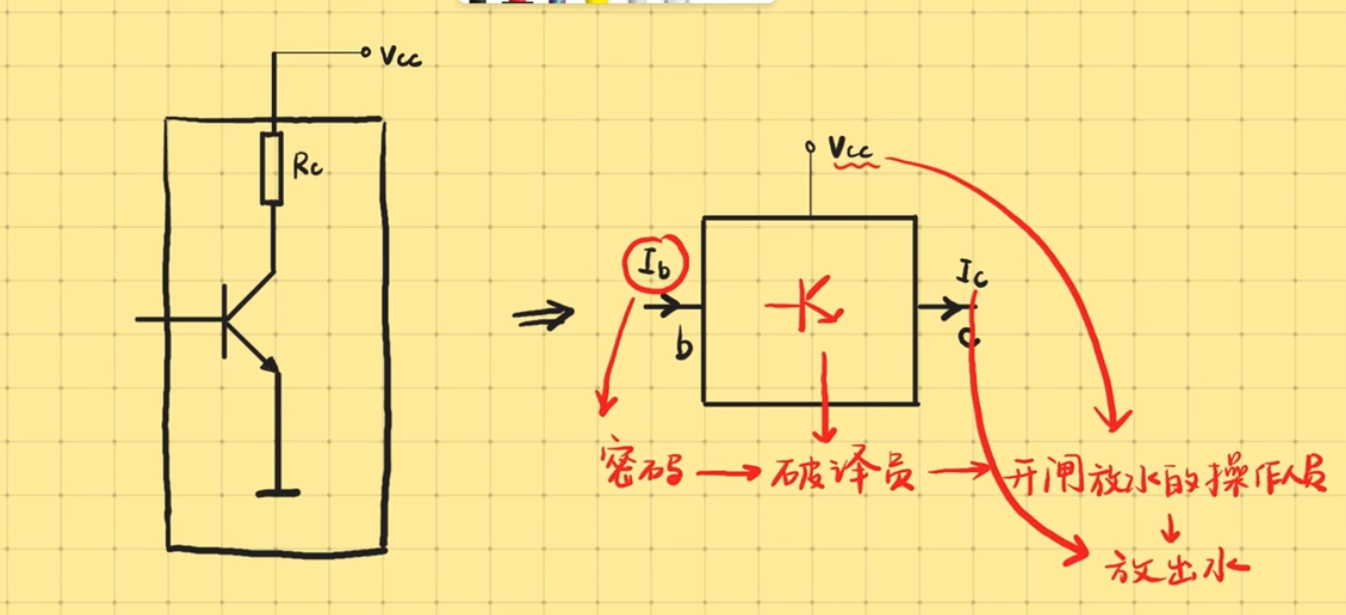 Vcc
Rc
Vcc
Ib
Ic
b
c
密码 → 破译员 → 开闸放水的操作人员
↓
放出水